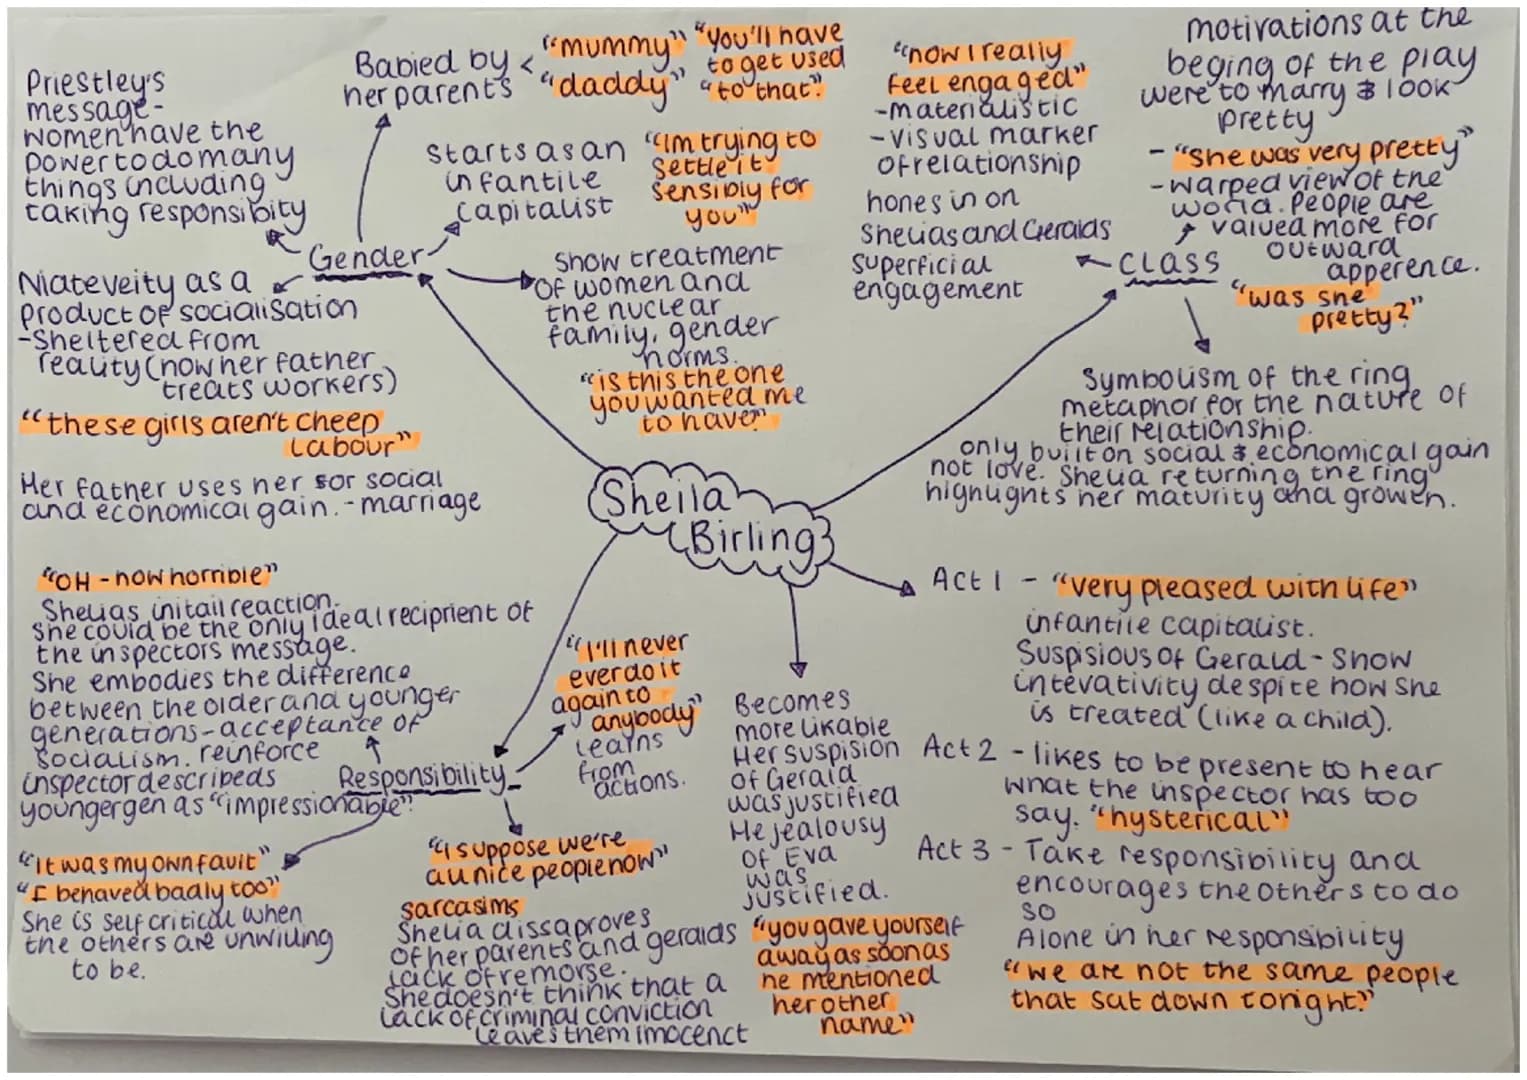 Priestley's
message-
women have the
power to do many
things including
taking responsibity
Babied by <
her parents
"mummy"
"daddy"
"You'll have
to get used
"to that".
starts as an
infantile
capitalist
"Im trying to
settle it
sensibly for
you"
Gender
Niateveity as a
product of socialisation
-Sheltered from
reality (how her father
treats workers)
"these girls aren't cheep
Labour"
Her father uses her for social
and economical gain. - marriage
Show treatment
of women and
the nuclear
family, gender
norms.
"is this the one
you wanted me
to have?"
"now I really
feel engaged"
-materialistic
-visual marker
of relationship
hones in on
Shelias and Geralds
superficial
engagement
motivations at the
beging of the play
were to marry & look
pretty
- "She was very pretty"
-warped view of the
world. People are
valued more for
outward
apperence.
"was she
pretty?"
CLASS
Symbolism of the ring
metaphor for the nature of
their relationship.
only built on social & economical gain
not love. Shelia returning the ring
highlights her maturity and growth.
Sheila
Birling
"OH - how horrible"
Shelias initail reaction.
She could be the only ideal reciprient of
the inspectors message.
She embodies the difference
between the older and younger
generations - acceptance of
socialism. reinforce
inspector describeds
younger gen as "impressionable".
Responsibility
"I'll never
ever do it
again to
anybody"
learns
from
actions.
"it was my own fault"
"I behaved badly too"
She is self critical when
the others are unwilling
to be.
"i suppose we're
all nice people now"
sarcasims
Shelia dissaproves
of her parents and geralds
lack of remorse.
She doesn't think that a
lack of criminal conviction
leaves them imocenct
Becomes
more likable
Her suspision
of Gerald
was justified
He jealousy
of Eva
was
justified.
"you gave yourself
away as soon as
he mentioned
her other
name"
Act 1 - "very pleased with life"
infantile capitalist.
Suspisious of Gerald - Show
intevativity despite how she
is treated (like a child).
Act 2 - likes to be present to hear
what the inspector has too
say. "hysterical"
Act 3 - Take responsibility and
encourages the others to do
so
Alone in her responsibility
"we are not the same people
that sat down tonight."